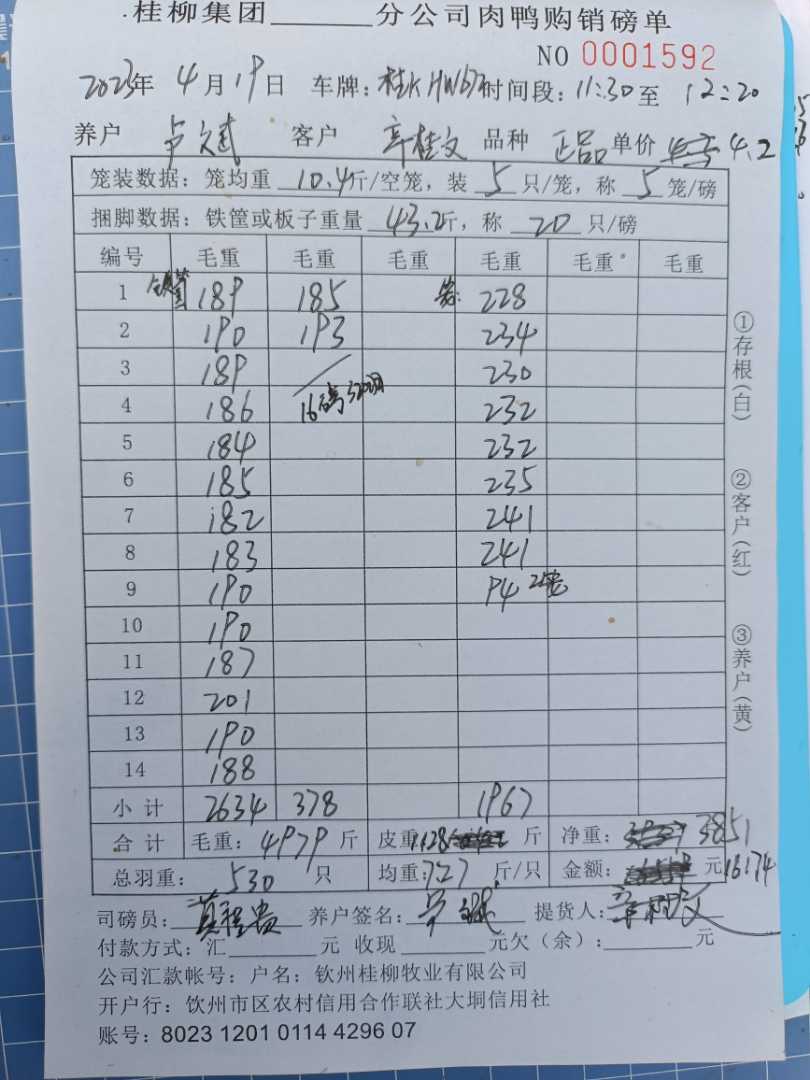 桂柳集团______分公司肉鸭购销磅单
NO 0001592
2023年 4月19日 车牌：桂K HW672 时间段：11:30至 12:20
养户 卢文斌 客户 辛桂文 品种 正品 单价 4.2
笼装数据：笼均重 10.4斤/空笼，装 5 只/笼，称 5 笼/磅
捆脚数据：铁筐或板子重量 43.2斤，称 20 只/磅
编号 毛重 毛重 毛重 毛重 毛重 毛重
1 189 185 笼: 228
2 190 193 234
3 189 230
4 186 16磅320羽 232
5 184 232
6 185 235
7 182 241
8 183 241
9 190 94 2笼
10 190
11 187
12 201
13 190
14 188
小计 2634 378 1967
合计 毛重：4979 斤 皮重：1128 斤 净重：3851
总羽重： 530 只 均重：727 斤/只 金额： 元16174
司磅员： 养户签名： 提货人：辛桂文
付款方式：汇______元 收现______元欠（余）：______元
公司汇款帐号：户名：钦州桂柳牧业有限公司
开户行：钦州市区农村信用合作联社大垌信用社
账号：8023 1201 0114 4296 07
①存根（白）
②客户（红）
③养户（黄）